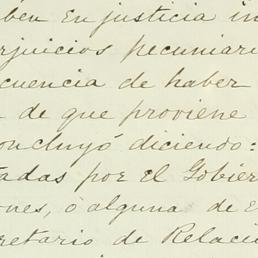 ben en justicia in
rjuicios pecuniari
cuencia de haber
de que proviene
oncluyó diciendo:
tadas por el Gobier
ones, ó alguna de e
cretario de Relaci